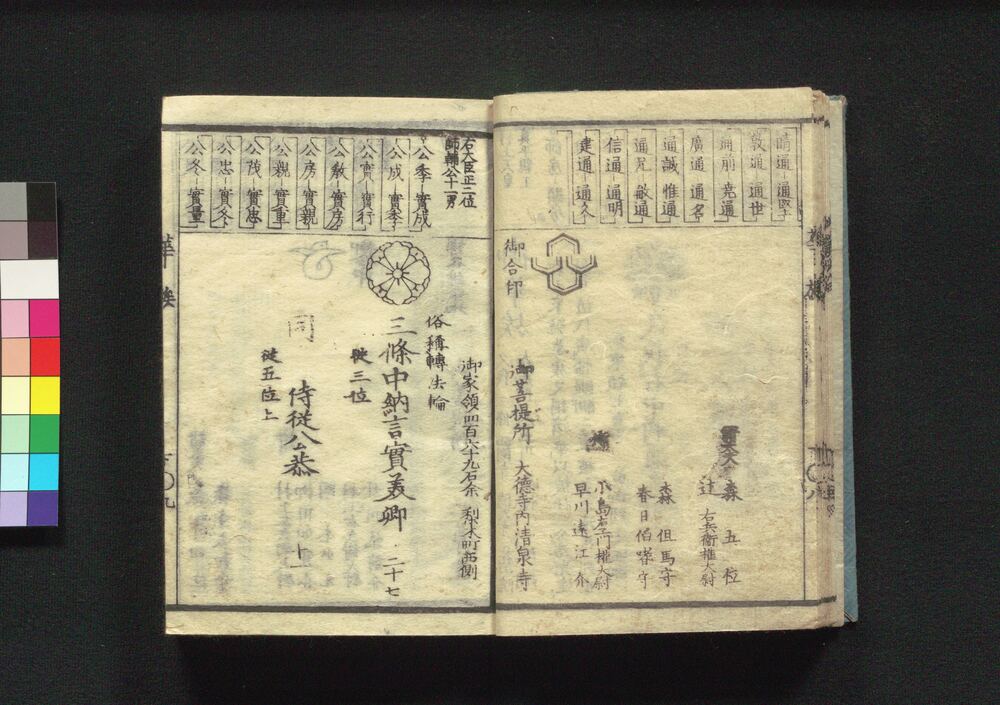 晴通－通堅
敦通 通世
通前 尭通
廣通 通名
通誠 惟通
通兄 敏通
信通－通明
建通 通久
森 五位
辻 右兵衛權大尉
森 但馬守
春日 伯耆守
小島 左衛門權大尉
早川 遠江介
御合印
御菩提所 大徳寺内清泉寺
右大臣正二位
師輔公十一男
公季－實成
公成 實季
公實－實行
公教－實房
公房－實親
公親－實重
公茂－實忠
公忠－實冬
公冬－實量
御家領四百六十九石余 梨木町西側
俗稱轉法輪
三條中納言實美卿 二十七
從三位
同 侍從公恭 十一
從五位上
華族